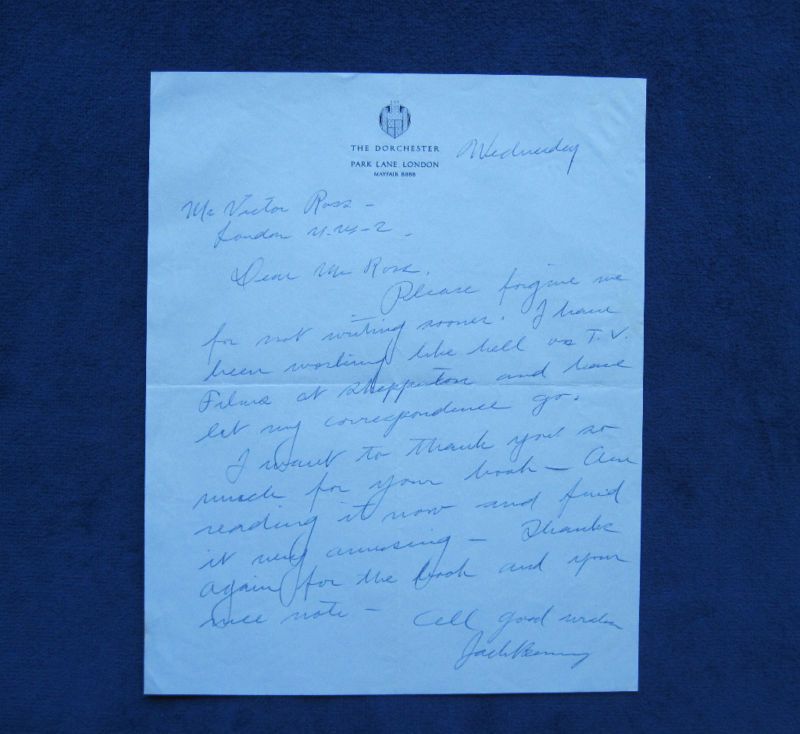 THE DORCHESTER
PARK LANE, LONDON
MAYFAIR 8888
Wednesday
Mr Victor Ross –
London N.W-2.
Dear Mr Ross.
Please forgive me
for not writing sooner. I have
been working like hell on T.V.
Films at Shepperton and have
let my correspondence go.
I want to thank you so
much for your book – Am
reading it now and find
it very amusing – Thanks
again for the book and your
nice note – All good wishes
Jack Benny